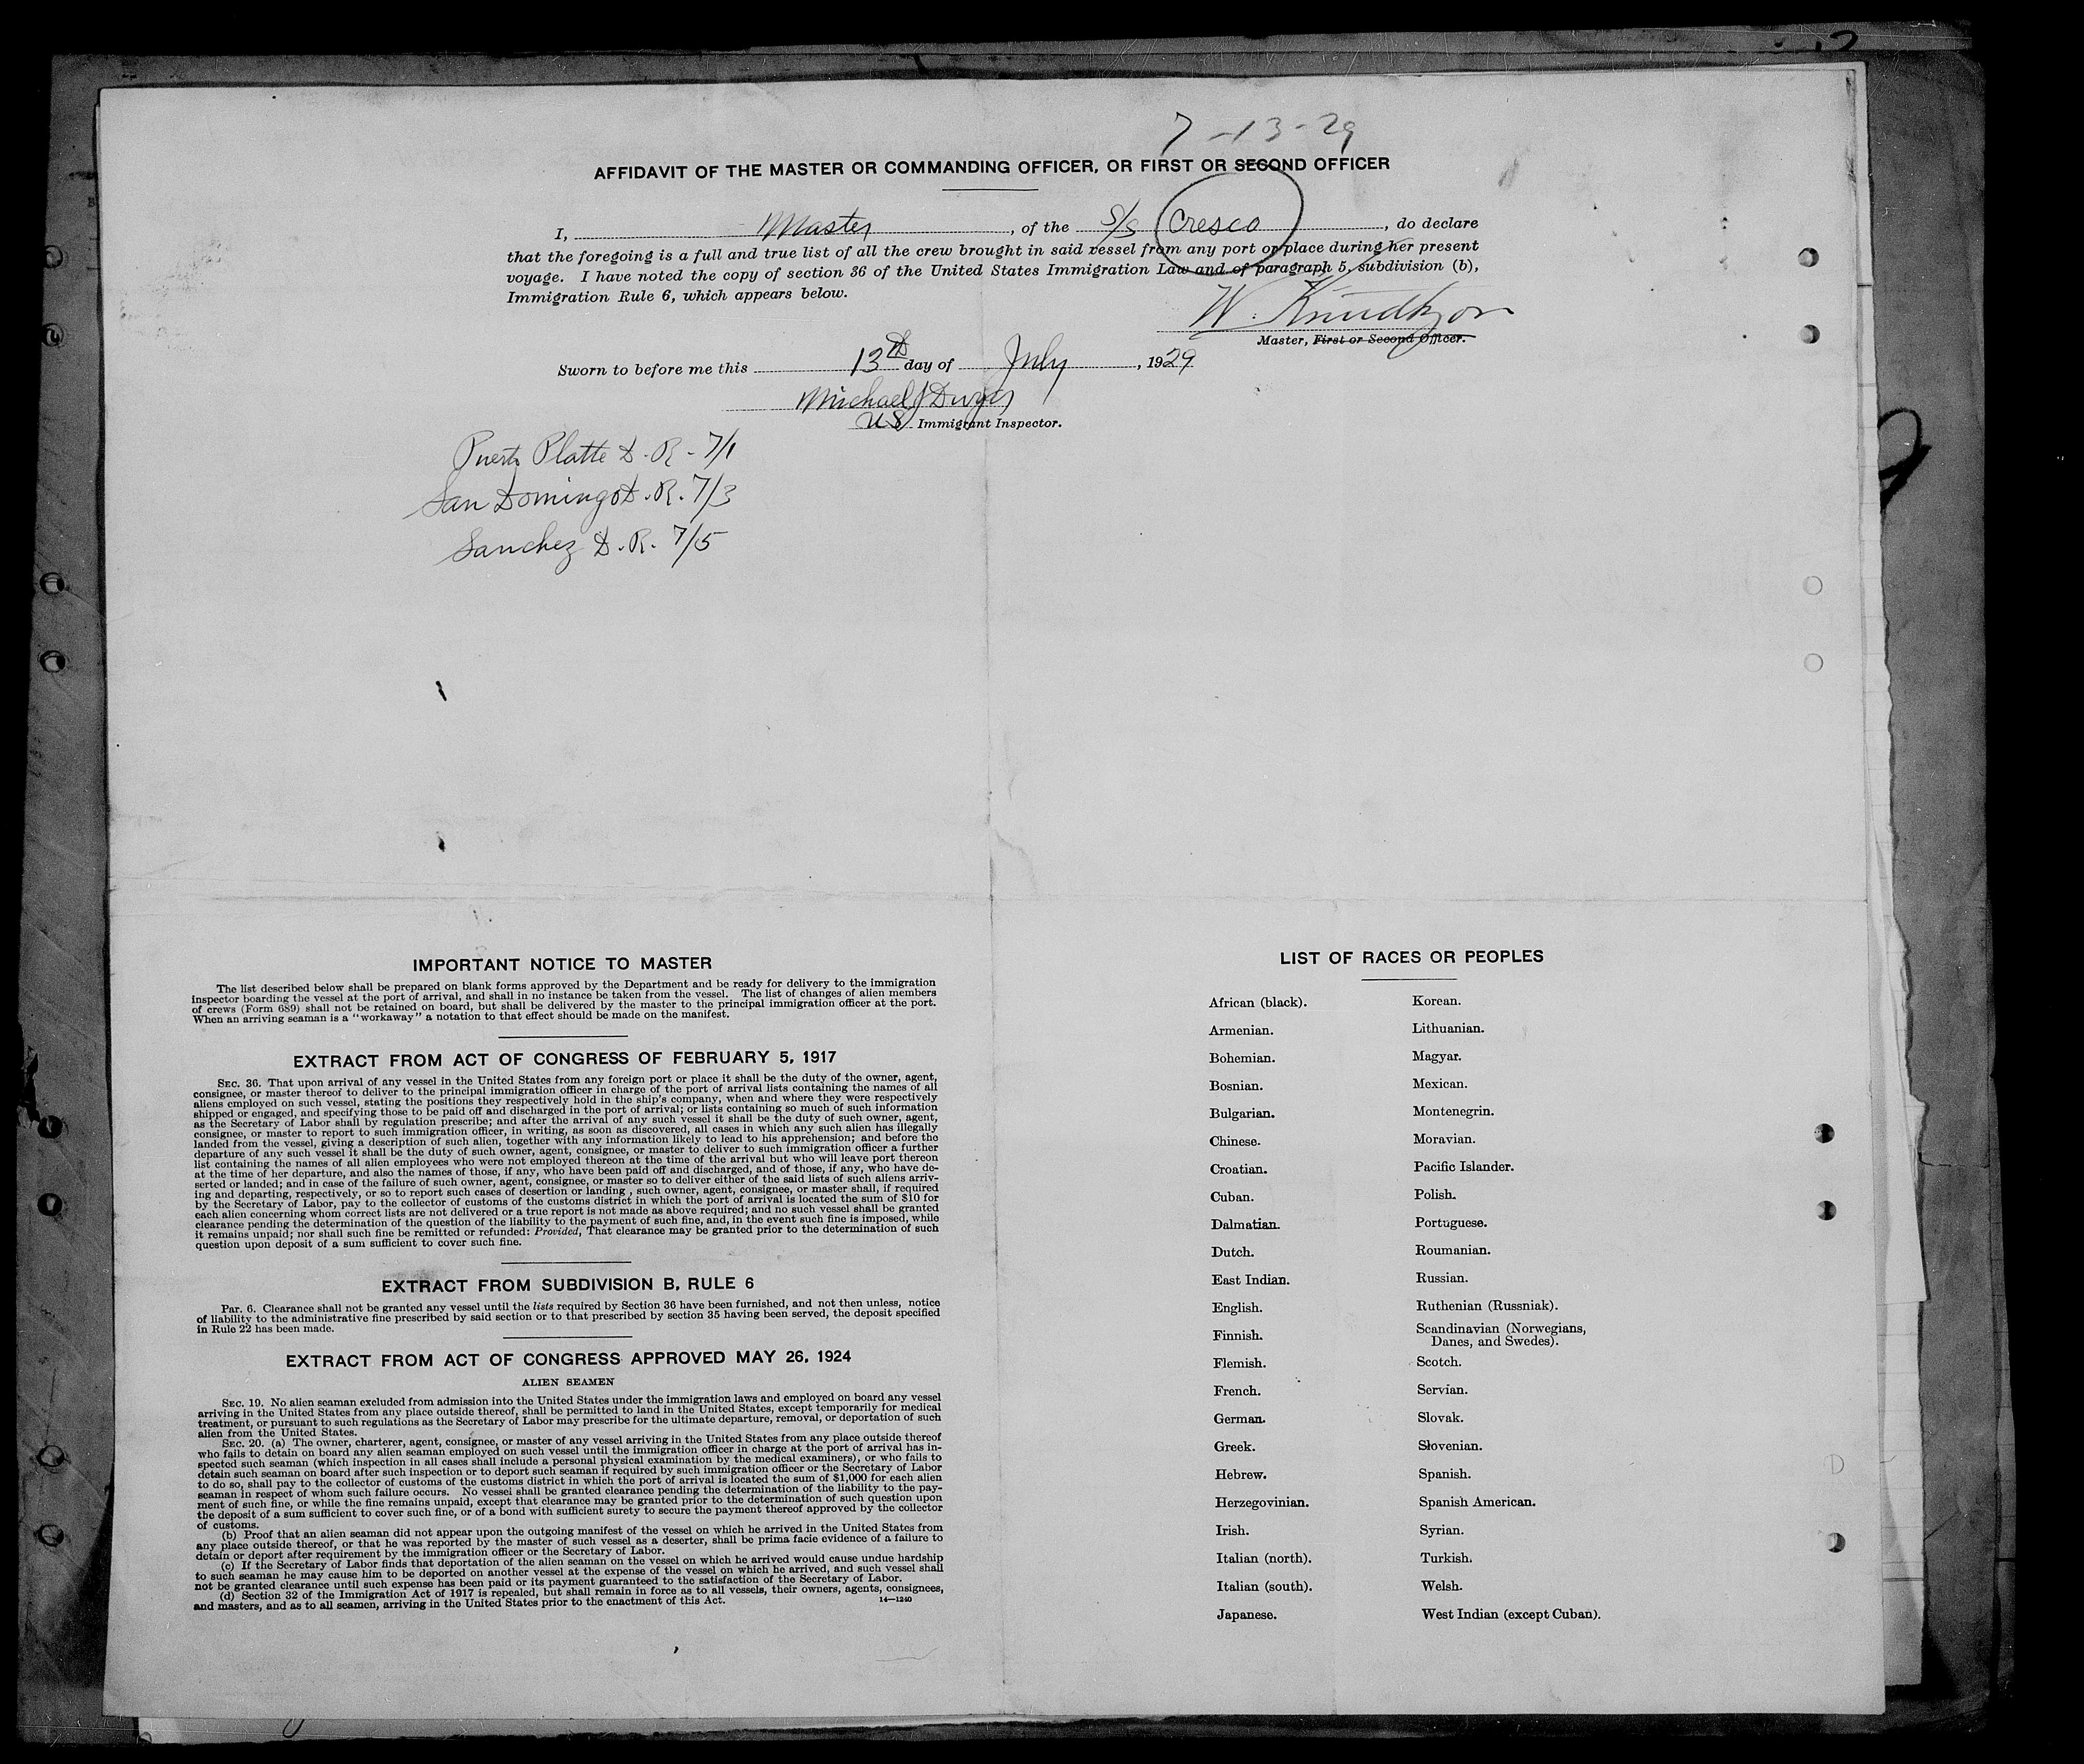 7-13-29
AFFIDAVIT OF THE MASTER OR COMMANDING OFFICER, OR FIRST OR SECOND OFFICER
I, Master, of the S/S Cresco, do declare
that the foregoing is a full and true list of all the crew brought in said vessel from any port or place during her present
voyage. I have noted the copy of section 36 of the United States Immigration Law and of paragraph 5, subdivision (b),
Immigration Rule 6, which appears below.
W. Knudtzon
Master, First or Second Officer.
Sworn to before me this 13th day of July, 1929
Michael J Dwyer
US Immigrant Inspector.
Puerto Platte D.R - 7/1
San Domingo D.R. 7/3
Sanchez D.R. 7/5
IMPORTANT NOTICE TO MASTER
The list described below shall be prepared on blank forms approved by the Department and be ready for delivery to the immigration
inspector boarding the vessel at the port of arrival, and shall in no instance be taken from the vessel. The list of changes of alien members
of crews (Form 689) shall not be retained on board, but shall be delivered by the master to the principal immigration officer at the port.
When an arriving seaman is a "workaway" a notation to that effect should be made on the manifest.
EXTRACT FROM ACT OF CONGRESS OF FEBRUARY 5, 1917
SEC. 36. That upon arrival of any vessel in the United States from any foreign port or place it shall be the duty of the owner, agent,
consignee, or master thereof to deliver to the principal immigration officer in charge of the port of arrival lists containing the names of all
aliens employed on such vessel, stating the positions they respectively hold in the ship's company, when and where they were respectively
shipped or engaged, and specifying those to be paid off and discharged in the port of arrival; or lists containing so much of such information
as the Secretary of Labor shall by regulation prescribe; and after the arrival of any such vessel it shall be the duty of such owner, agent,
consignee, or master to report to such immigration officer, in writing, as soon as discovered, all cases in which any such alien has illegally
landed from the vessel, giving a description of such alien, together with any information likely to lead to his apprehension; and before the
departure of any such vessel it shall be the duty of such owner, agent, consignee, or master to deliver to such immigration officer a further
list containing the names of all alien employees who were not employed thereon at the time of the arrival but who will leave port thereon
at the time of her departure, and also the names of those, if any, who have been paid off and discharged, and of those, if any, who have de-
serted or landed; and in case of the failure of such owner, agent, consignee, or master so to deliver either of the said lists of such aliens arriv-
ing and departing, respectively, or so to report such cases of desertion or landing, such owner, agent, consignee, or master shall, if required
by the Secretary of Labor, pay to the collector of customs of the customs district in which the port of arrival is located the sum of $10 for
each alien concerning whom correct lists are not delivered or a true report is not made as above required; and no such vessel shall be granted
clearance pending the determination of the question of the liability to the payment of such fine, and, in the event such fine is imposed, while
it remains unpaid; nor shall such fine be remitted or refunded: Provided, That clearance may be granted prior to the determination of such
question upon deposit of a sum sufficient to cover such fine.
EXTRACT FROM SUBDIVISION B, RULE 6
Par. 6. Clearance shall not be granted any vessel until the lists required by Section 36 have been furnished, and not then unless, notice
of liability to the administrative fine prescribed by said section or to that prescribed by section 35 having been served, the deposit specified
in Rule 22 has been made.
EXTRACT FROM ACT OF CONGRESS APPROVED MAY 26, 1924
ALIEN SEAMEN
SEC. 19. No alien seaman excluded from admission into the United States under the immigration laws and employed on board any vessel
arriving in the United States from any place outside thereof, shall be permitted to land in the United States, except temporarily for medical
treatment, or pursuant to such regulations as the Secretary of Labor may prescribe for the ultimate departure, removal, or deportation of such
alien from the United States.
SEC. 20. (a) The owner, charterer, agent, consignee, or master of any vessel arriving in the United States from any place outside thereof
who fails to detain on board any alien seaman employed on such vessel until the immigration officer in charge at the port of arrival has in-
spected such seaman (which inspection in all cases shall include a personal physical examination by the medical examiners), or who fails to
detain such seaman on board after such inspection or to deport such seaman if required by such immigration officer or the Secretary of Labor
to do so, shall pay to the collector of customs of the customs district in which the port of arrival is located the sum of $1,000 for each alien
seaman in respect of whom such failure occurs. No vessel shall be granted clearance pending the determination of the liability to the pay-
ment of such fine, or while the fine remains unpaid, except that clearance may be granted prior to the determination of such question upon
the deposit of a sum sufficient to cover such fine, or of a bond with sufficient surety to secure the payment thereof approved by the collector
of customs.
(b) Proof that an alien seaman did not appear upon the outgoing manifest of the vessel on which he arrived in the United States from
any place outside thereof, or that he was reported by the master of such vessel as a deserter, shall be prima facie evidence of a failure to
detain or deport after requirement by the immigration officer or the Secretary of Labor.
(c) If the Secretary of Labor finds that deportation of the alien seaman on the vessel on which he arrived would cause undue hardship
to such seaman he may cause him to be deported on another vessel at the expense of the vessel on which he arrived, and such vessel shall
not be granted clearance until such expense has been paid or its payment guaranteed to the satisfaction of the Secretary of Labor.
(d) Section 32 of the Immigration Act of 1917 is repealed, but shall remain in force as to all vessels, their owners, agents, consignees,
and masters, and as to all seamen, arriving in the United States prior to the enactment of this Act.
14—1240
LIST OF RACES OR PEOPLES
African (black).
Armenian.
Bohemian.
Bosnian.
Bulgarian.
Chinese.
Croatian.
Cuban.
Dalmatian.
Dutch.
East Indian.
English.
Finnish.
Flemish.
French.
German.
Greek.
Hebrew.
Herzegovinian.
Irish.
Italian (north).
Italian (south).
Japanese.
Korean.
Lithuanian.
Magyar.
Mexican.
Montenegrin.
Moravian.
Pacific Islander.
Polish.
Portuguese.
Roumanian.
Russian.
Ruthenian (Russniak).
Scandinavian (Norwegians,
Danes, and Swedes).
Scotch.
Servian.
Slovak.
Slovenian.
Spanish.
Spanish American.
Syrian.
Turkish.
Welsh.
West Indian (except Cuban).